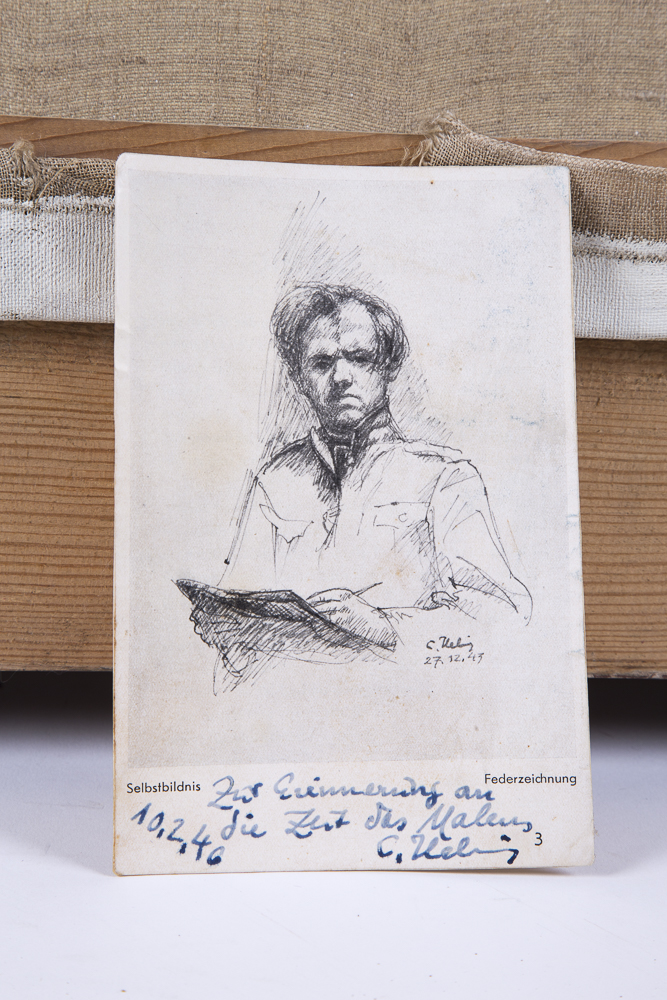 C. Uebing
27.12.43
Selbstbildnis
Federzeichnung
Zur Erinnerung an
die Zeit des Malens
10.2.46
C. Uebing
3